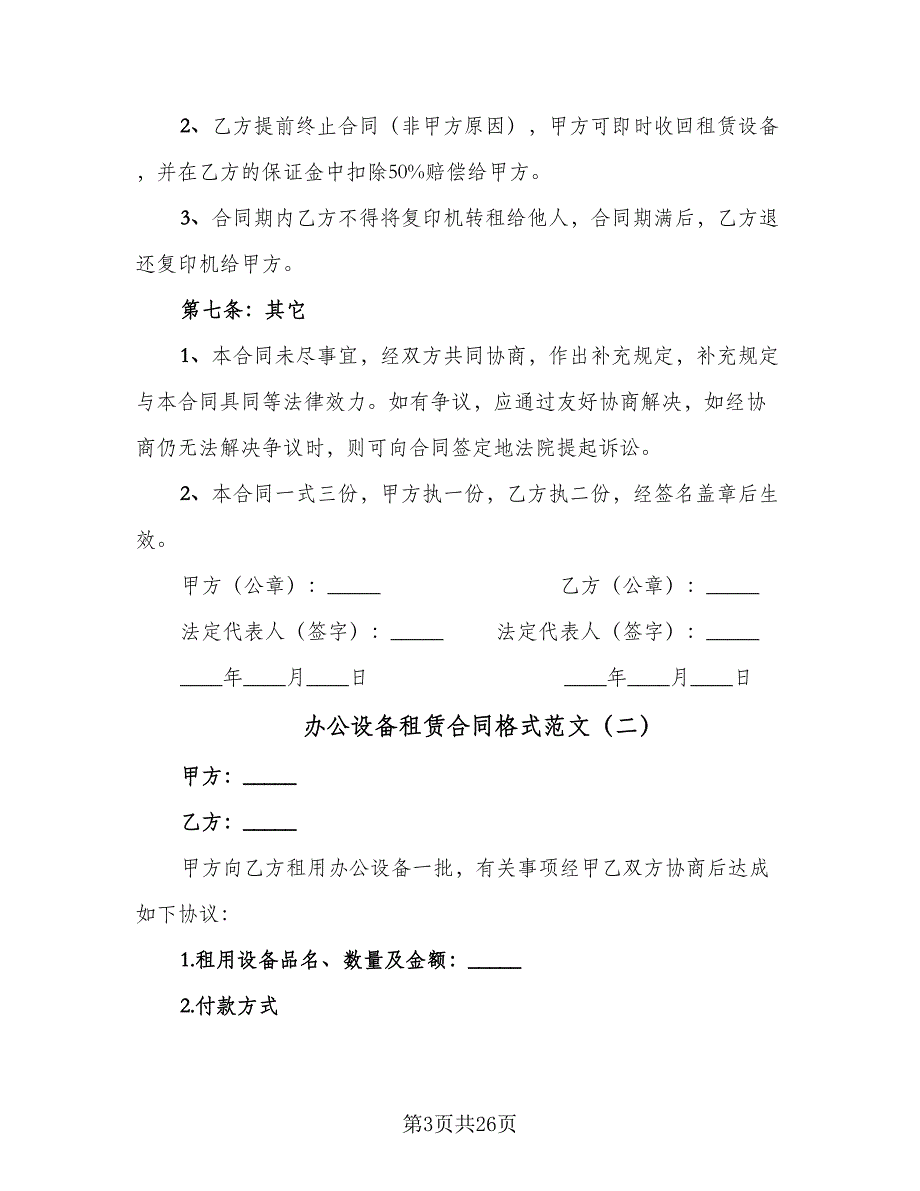 2、乙方提前终止合同（非甲方原因），甲方可即时收回租赁设备
，并在乙方的保证金中扣除50%赔偿给甲方。
3、合同期内乙方不得将复印机转租给他人，合同期满后，乙方退
还复印机给甲方。
第七条：其它
1、本合同未尽事宜，经双方共同协商，作出补充规定，补充规定
与本合同具同等法律效力。如有争议，应通过友好协商解决，如经协
商仍无法解决争议时，则可向合同签定地法院提起诉讼。
2、本合同一式三份，甲方执一份，乙方执二份，经签名盖章后生
效。
甲方（公章）：_____ 乙方（公章）：_____
法定代表人（签字）：_____ 法定代表人（签字）：_____
____年____月____日 ____年____月____日
办公设备租赁合同格式范文（二）
甲方：_____
乙方：_____
甲方向乙方租用办公设备一批，有关事项经甲乙双方协商后达成
如下协议：
1.租用设备品名、数量及金额：_____
2.付款方式
第3页共26页